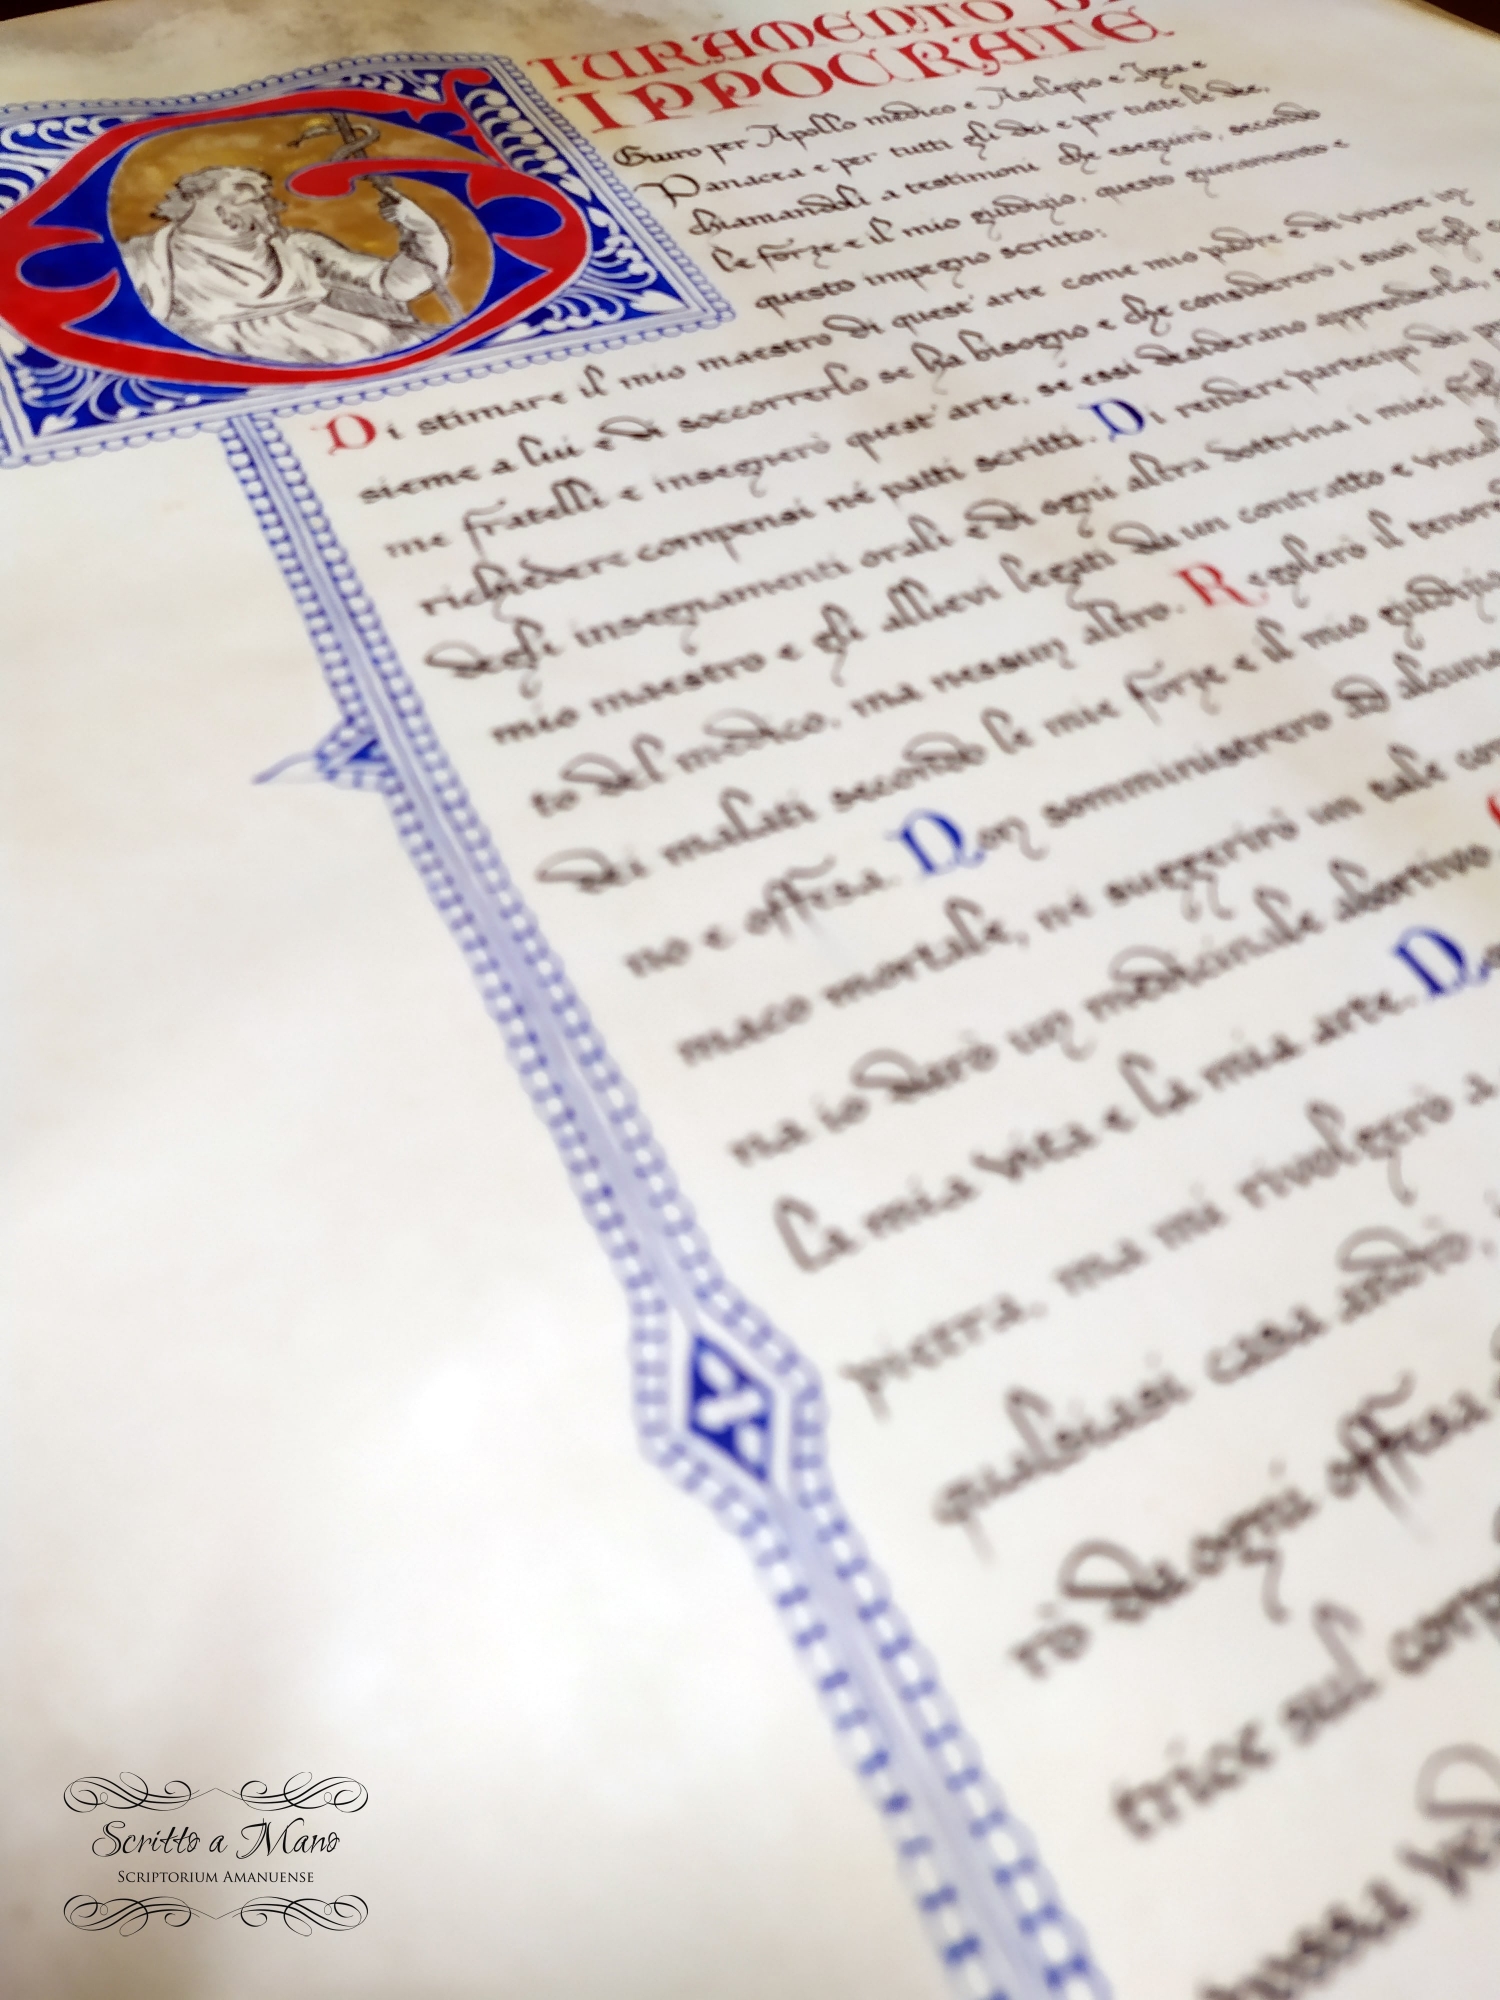 GIURAMENTO DI
IPPOCRATE
Giuro per Apollo medico e Asclepio e Igea e
Panacea e per tutti gli dei e per tutte le dee,
chiamandoli a testimoni che eseguirò, secondo
le forze e il mio giudizio, questo giuramento e
questo impegno scritto:
Di stimare il mio maestro di quest'arte come mio padre e di vivere in
sieme a lui e di soccorrerlo se ha bisogno e che considererò i suoi figli
me fratelli e insegnerò quest'arte, se essi desiderano apprenderla,
richiedere compensi né patti scritti. Di rendere partecipi dei
degli insegnamenti orali e di ogni altra dottrina i miei figli
mio maestro e gli allievi legati da un contratto e
to del medico, ma nessun altro. Regolerò il tenore
dei malati secondo le mie forze e il mio giudizio
no e offesa. Non somministrerò ad alcuno
maco mortale, né suggerirò un tale
na io darò un medicinale abortivo
la mia vita e la mia arte.
pietra, ma mi rivolgerò a
qualsiasi casa andrò,
rò da ogni offesa
trice sul
Scritto a Mano
SCRIPTORIUM AMANUENSE